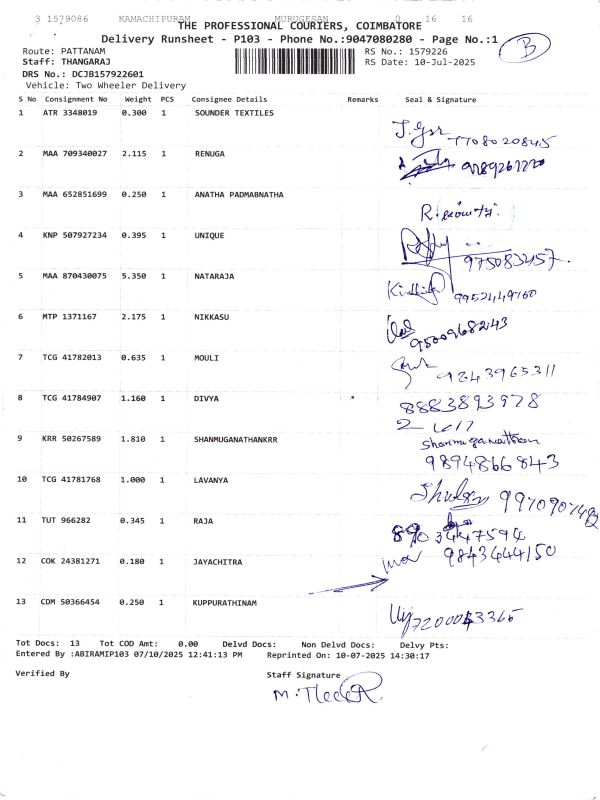 3 1579086 KAMACHIPURAM MURUGESAN 0 16 16
THE PROFESSIONAL COURIERS, COIMBATORE
Delivery Runsheet - P103 - Phone No.:9047080280 - Page No.:1
B
Route: PATTANAM RS No.: 1579226
Staff: THANGARAJ RS Date: 10-Jul-2025
DRS No.: DCJB157922601
Vehicle: Two Wheeler Delivery
S No Consignment No Weight PCS Consignee Details Remarks Seal & Signature
1 ATR 3348019 0.300 1 SOUNDER TEXTILES
7708020845
2 MAA 709340027 2.115 1 RENUGA
3 MAA 652851699 0.250 1 ANATHA PADMABNATHA
4 KNP 507927234 0.395 1 UNIQUE
975083257.
5 MAA 870430075 5.350 1 NATARAJA
9952449760
6 MTP 1371167 2.175 1 NIKKASU
9500968243
7 TCG 41782013 0.635 1 MOULI
9243965311
8 TCG 41784907 1.160 1 DIVYA
8883893978
9 KRR 50267589 1.810 1 SHANMUGANATHANKRR
Shanmuganathan
9894866843
10 TCG 41781768 1.000 1 LAVANYA
11 TUT 966282 0.345 1 RAJA
8903447594
12 COK 24381271 0.180 1 JAYACHITRA
9843444150
13 CDM 50366454 0.250 1 KUPPURATHINAM
Tot Docs: 13 Tot COD Amt: 0.00 Delvd Docs: Non Delvd Docs: Delvy Pts:
Entered By :ABIRAMIP103 07/10/2025 12:41:13 PM Reprinted On: 10-07-2025 14:30:17
Verified By Staff Signature